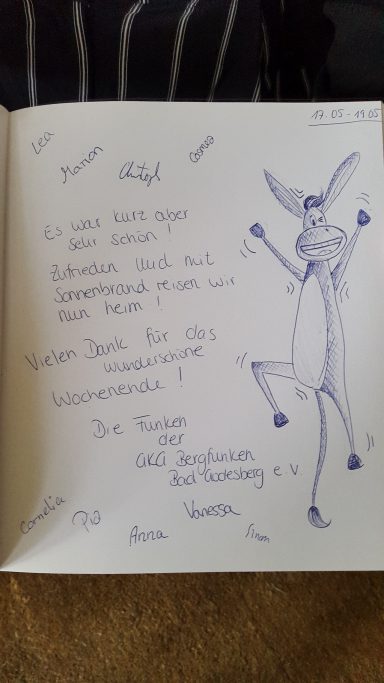 17.05 - 19.05
Lea
Marion
Christoph
Cosmea
Es war kurz aber
sehr schön !
Zufrieden Und mit
Sonnenbrand reisen wir
nun heim !
Vielen Dank für das
wunderschöne
Wochenende !
Die Funken
der
GKG Bergfunken
Bad Godesberg e.V.
Cornelia
Pia
Anna
Vanessa